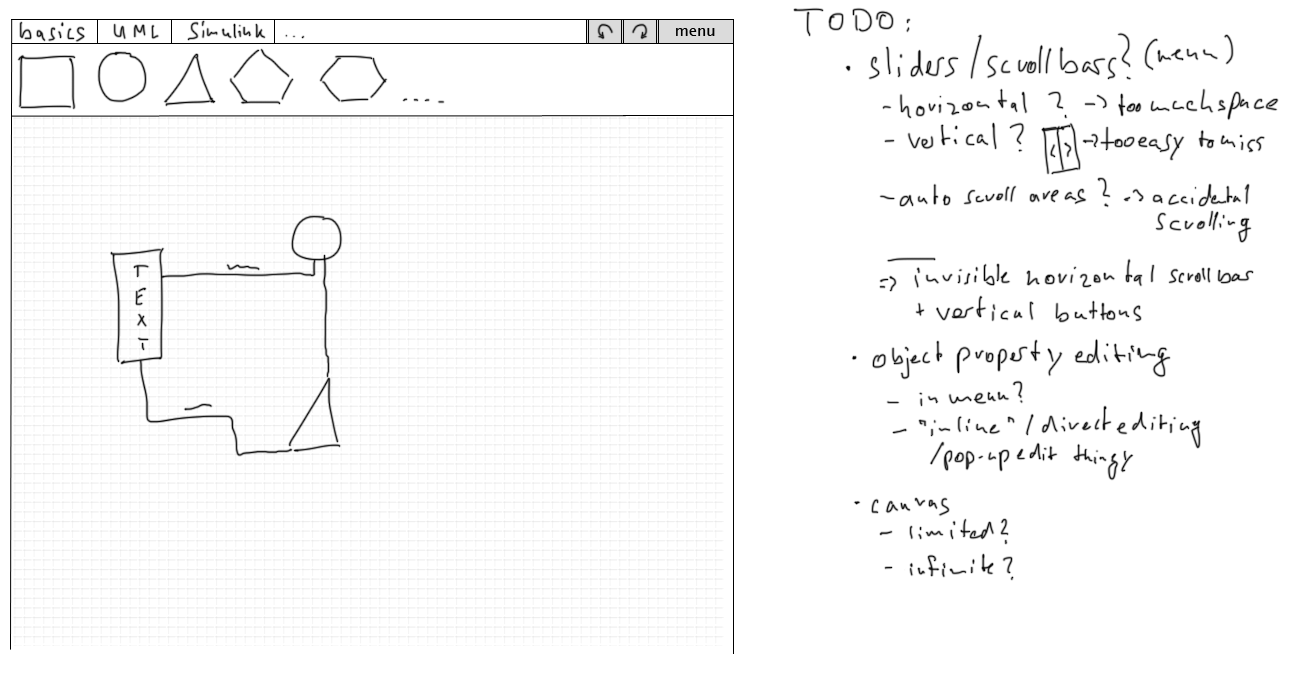 basics UML Simulink ... menu
....
T
E
X
T
TODO:
· sliders/scrollbars? (menu)
- horizontal ? -> too much space
- vertical ? <|> -> too easy to miss
- auto scroll areas ? -> accidental
scrolling
=> invisible horizontal scrollbar
+ vertical buttons
· object property editing
- in menu?
- "inline" / direct editing
/pop-up edit thingy
· canvas
- limited?
- infinite?